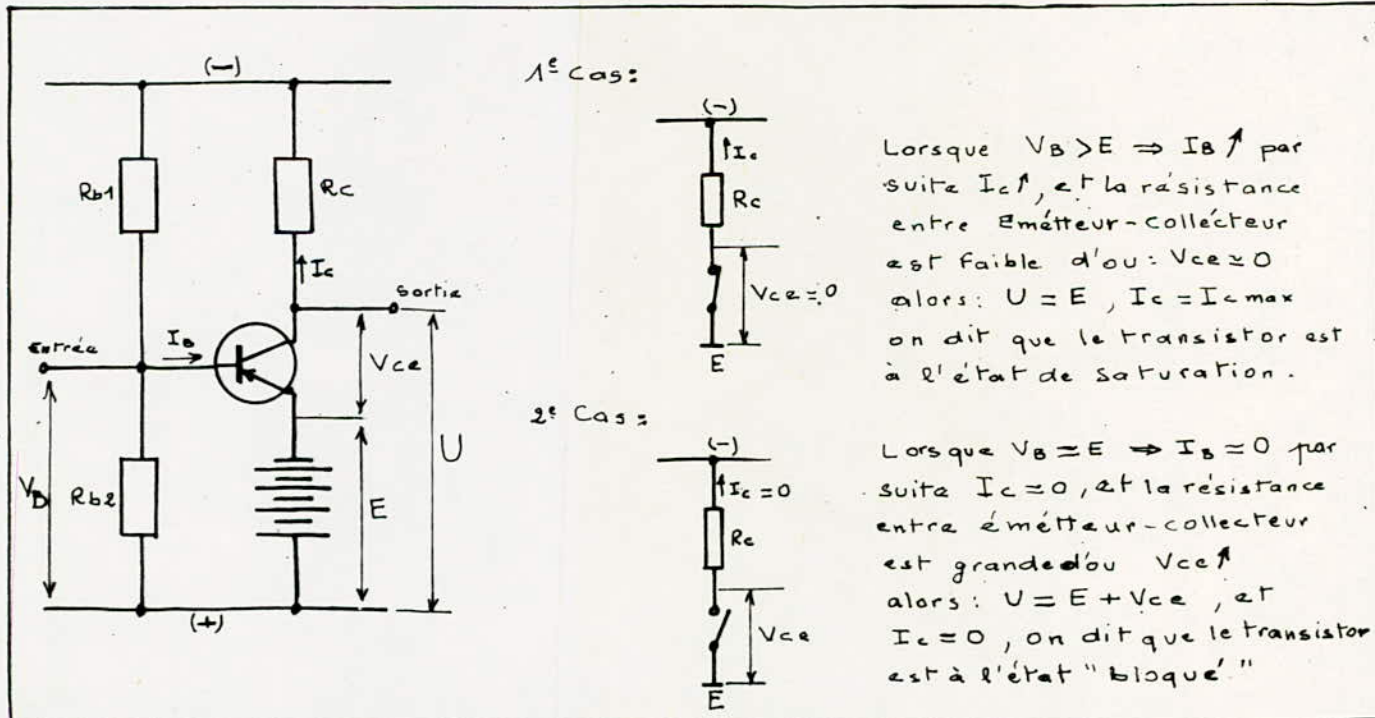 (-)
Rb1
Rc
Ic
Sortie
Entrée
IB
Vce
VB
Rb2
E
U
(+)
1e Cas:
(-)
Ic
Rc
Vce≃0
E
Lorsque VB > E ⇒ IB ↗ par
suite Ic↗, et la résistance
entre Emétteur-collécteur
est faible d'ou: Vce ≃ 0
alors: U = E, Ic = Ic max
on dit que le transistor est
à l'état de saturation.
2e Cas:
(-)
Ic=0
Rc
Vce
E
Lorsque VB ≃ E ⇒ IB ≃ 0 par
suite Ic ≃ 0, et la résistance
entre émétteur-collecteur
est grande d'ou Vce↗
alors: U = E + Vce, et
Ic ≃ 0, on dit que le transistor
est à l'état "bloqué"